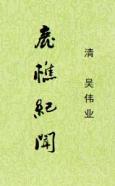 鹿樵紀聞
清 吴伟业